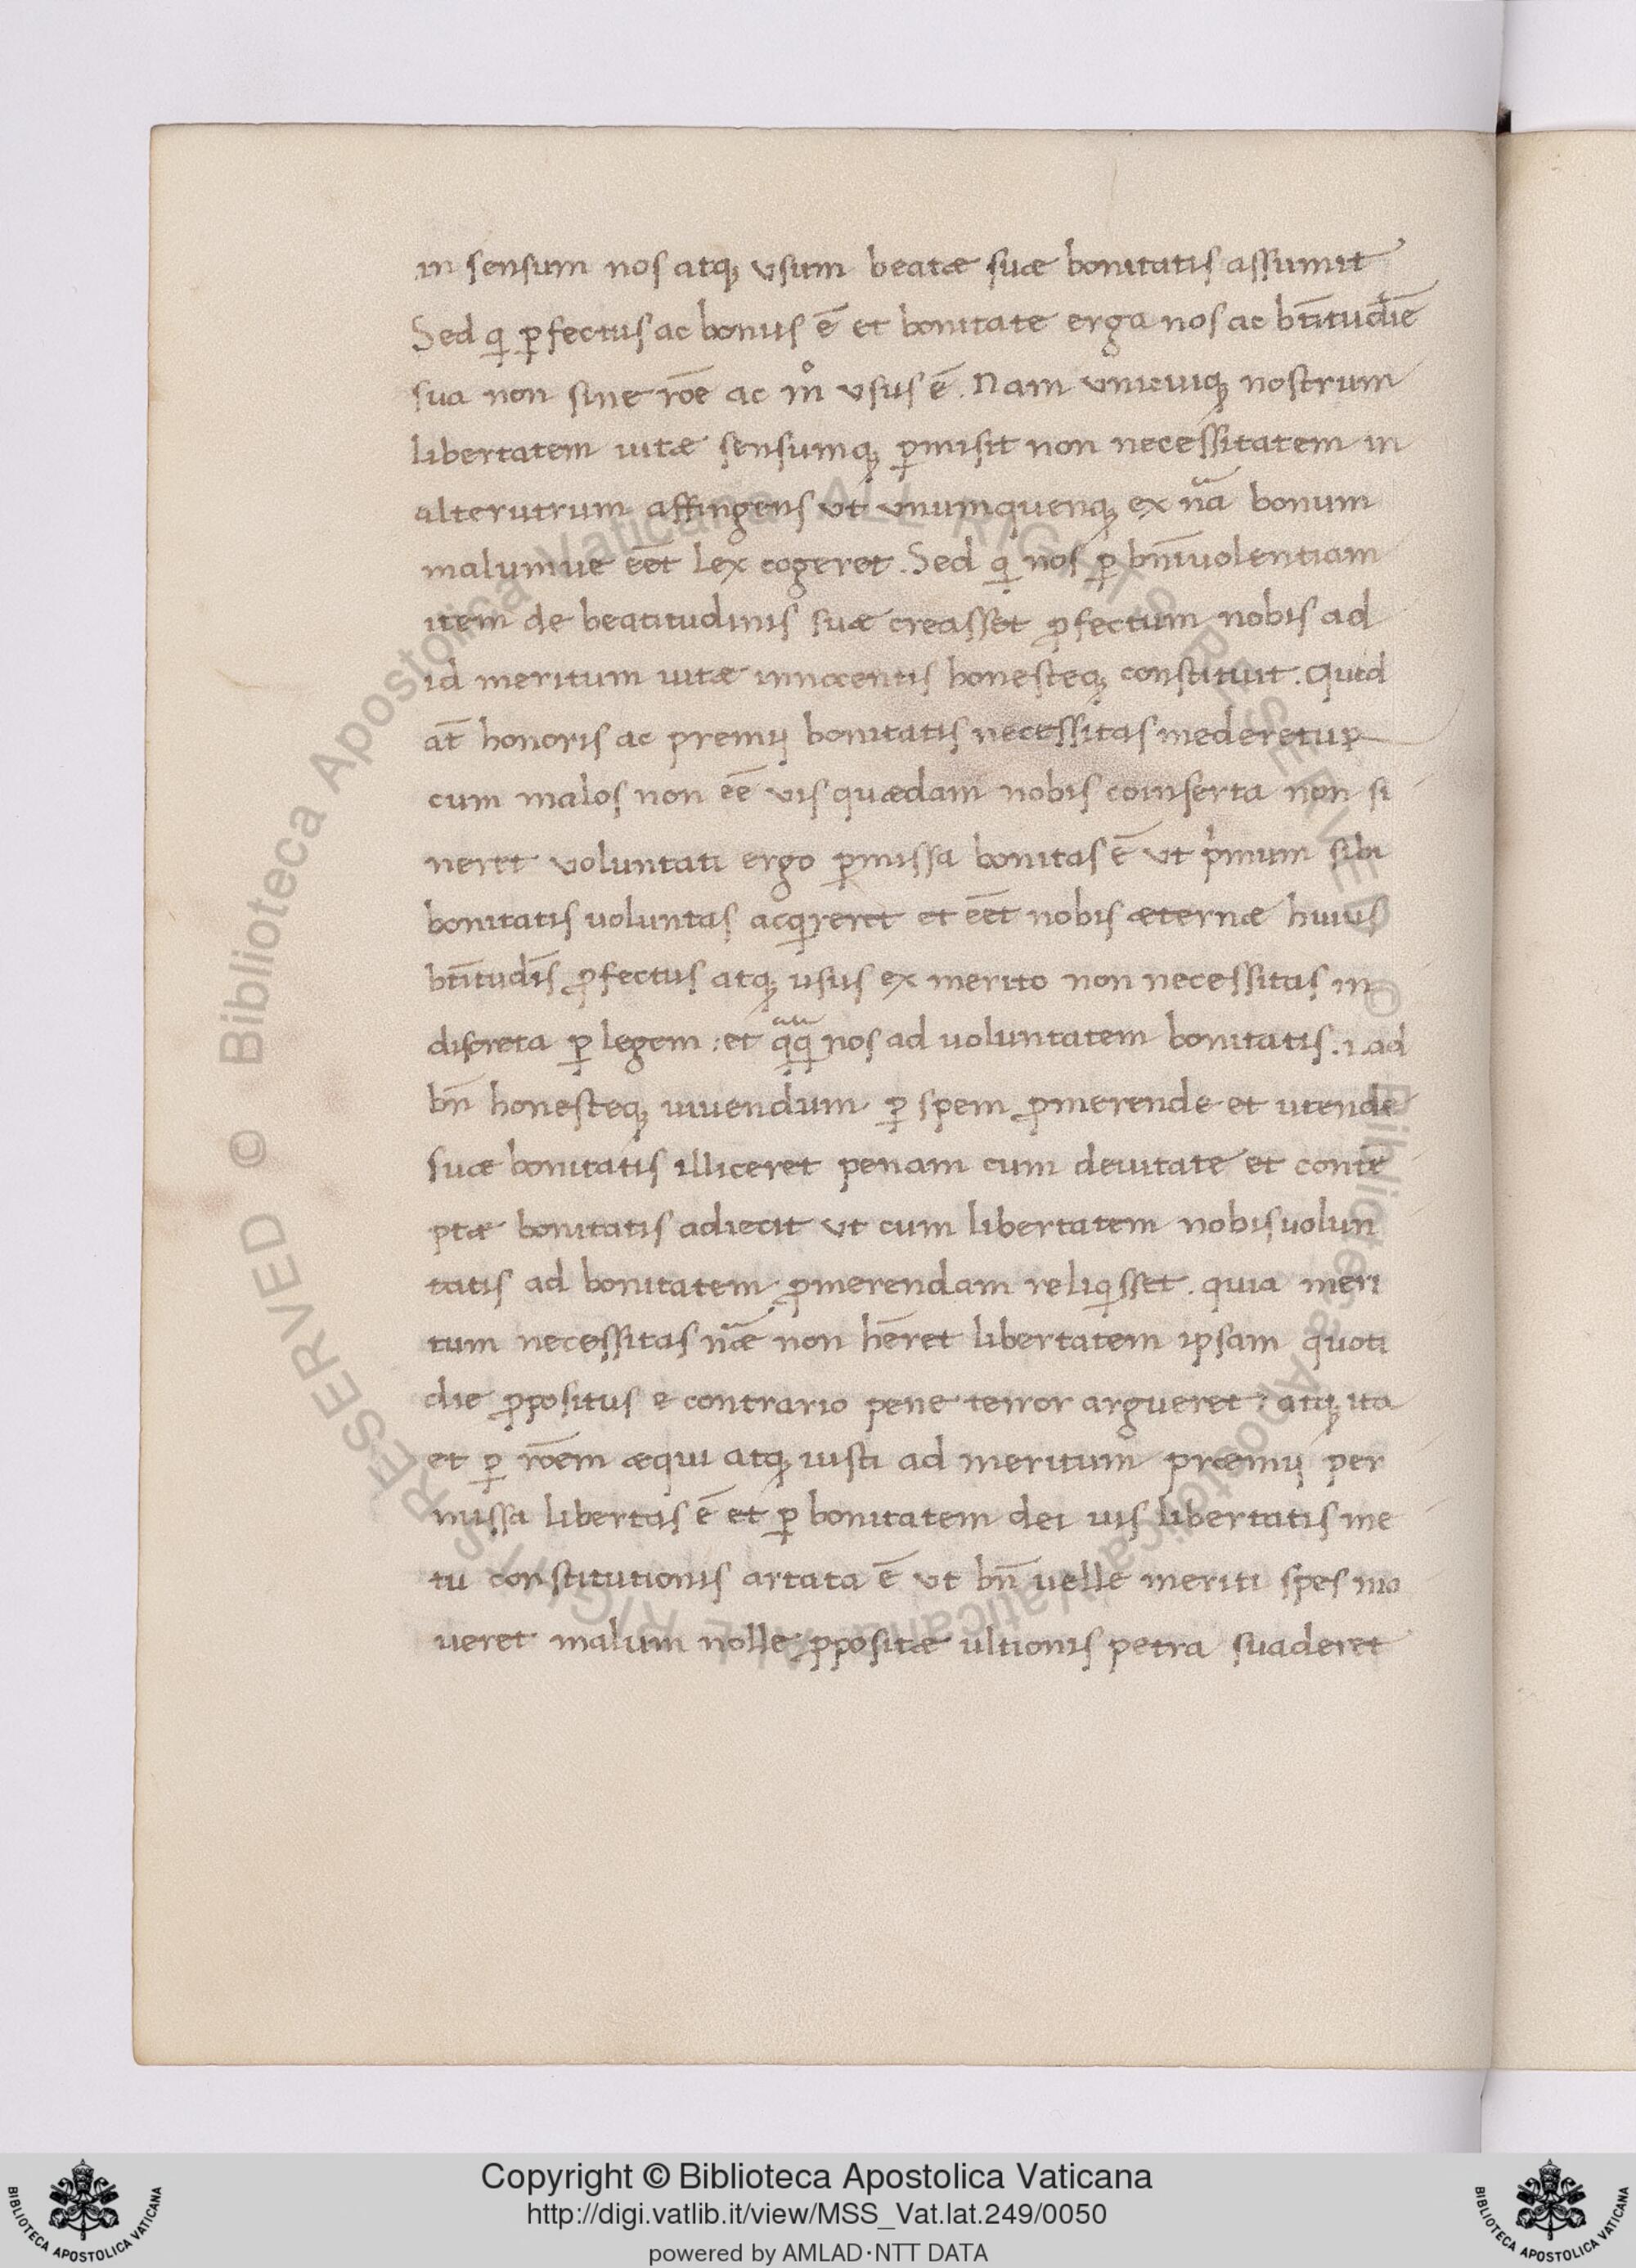 in sensum nos atq; vsum beatæ suæ bonitatis assumit
Sed qi ꝑfectus ac bonus ē et bonitate erga nos ac bt̄itudīe
sua non sine rōe ac mº vsus ē. Nam vnicuiq; nostrum
libertatem uitæ sensumq; ꝑmisit non necessitatem in
alterutrum affingens vt vnumquenq; ex nā bonum
malumue eēt Lex cogeret. Sed qi nos ꝑ bn̄iuolentiam
item de beatitudinis suæ creasset ꝓfectum nobis ad
id meritum uitæ innocentis honesteq; constituit. Quid
at̄ honoris ac premij bonitatis necessitas mederetur
cum malos non eē vis quædam nobis coinserta non si
neret voluntati ergo ꝑmissa bonitas ē vt pͥmum sibi
bonitatis uoluntas acqireret et eēt nobis æternæ huius
bt̄itudīs ꝓfectus atq; usus ex merito non necessitas in
discreta ꝑ legem : et qᵃqᵃ nos ad uoluntatem bonitatis .i. ad
bn̄ honesteq; uiuendum ꝑ spem ꝓmerende et utende
suæ bonitatis illiceret penam cum deuitate et contē
ptæ bonitatis adiecit vt cum libertatem nobis uolun
tatis ad bonitatem ꝓmerendam reliqisset. quia meri
tum necessitas nāæ non hēret libertatem ipsam quoti
die ꝓpositus e contrario pene terror argueret : atq; ita
et ꝑ rōem æqui atq; iusti ad meritum præmij per
missa libertas ē et ꝑ bonitatem dei uis libertatis me
tu constitutionis artata ē vt bn̄ uelle meriti spes mo
ueret malum nolle ꝓpositæ ultionis petra suaderet
© Biblioteca Apostolica Vaticana ALL RIGHTS RESERVED
© Biblioteca Apostolica Vaticana ALL RIGHTS RESERVED
Copyright © Biblioteca Apostolica Vaticana
http://digi.vatlib.it/view/MSS_Vat.lat.249/0050
powered by AMLAD·NTT DATA
BIBLIOTECA APOSTOLICA VATICANA
BIBLIOTECA APOSTOLICA VATICANA